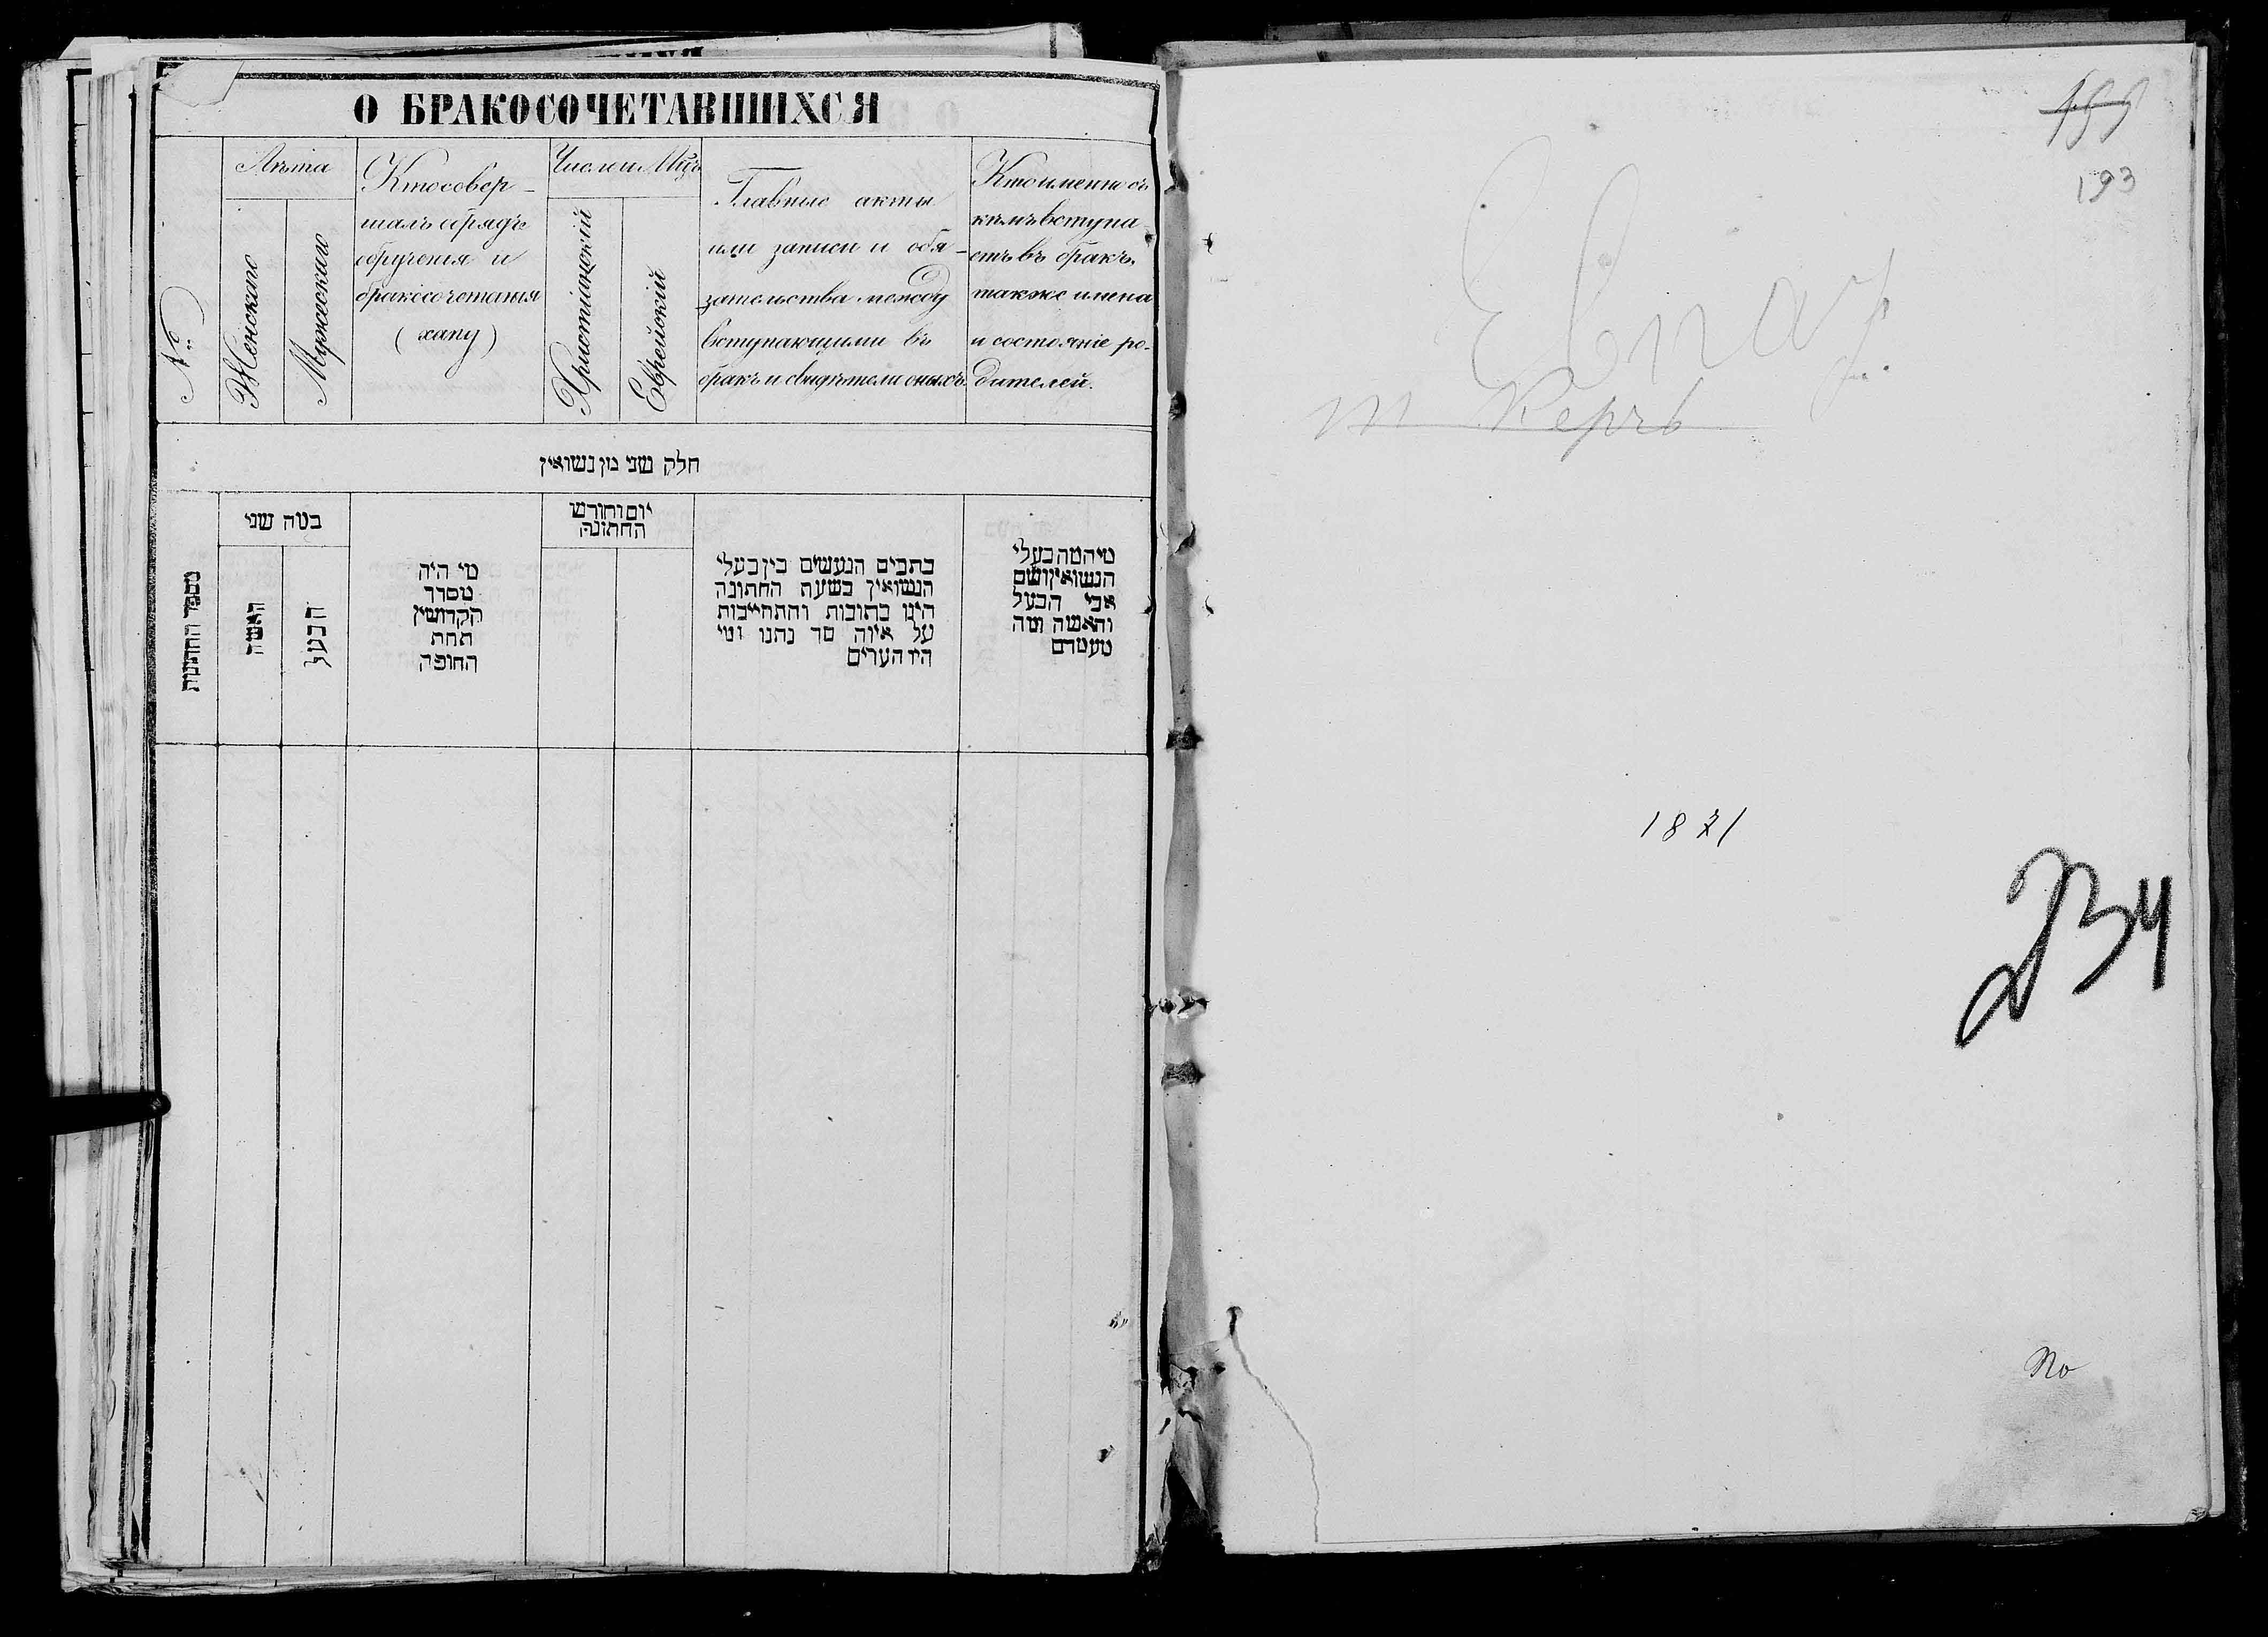 О БРАКОСОЧЕТАВШИХСЯ
№
Лѣта
Женскаго
Мужескаго
Кто совер-
шалъ обрядъ
обрученія и
бракосочетанія
(хапу)
Число и Мцъ
Христіанскій
Еврейскій
Главные акты
или записи и обя-
зательства между
вступающими въ
бракъ и свидѣтели оныхъ.
Кто именно съ
кѣмъ вступа-
етъ въ бракъ,
также имена
и состояніе ро-
дителей.
חלק שני מן נשואין
מספר החתונות
במה שני
האשה
הבעל
מי היה
מסדר
הקדושין
תחת
החופה
יום וחודש
החתונה
כתבים הנעשים בין בעלי
הנשואין בשעת החתונה
היינו כתובות והתחייבות
על איזה סך נתנו ומי
היו העדים
מי המה בעלי
הנשואין ושם
אבי הבעל
והאשה ומה
מעמדם
193
Керчь
1871
234
No